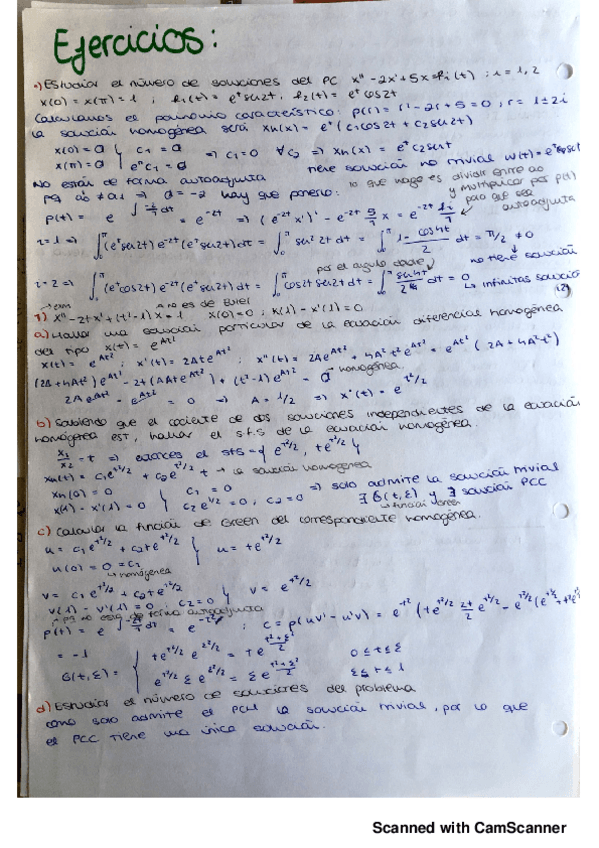 Ejercicios:
•) Estudiar el número de soluciones del PC x'' - 2x' + 5x = hi(t) ; i = 1, 2
x(0) = x(π) = 1 ; h1(t) = e^t sen2t , h2(t) = e^t cos2t
Calculamos el polinomio característico: p(r) = r² - 2r + 5 = 0 ; r = 1 ± 2i
La solución homogénea será xh(x) = e^t (c1 cos2t + c2 sen2t)
x(0) = 0 { c1 = 0 => c1 = 0 ∀c2 => xh(x) = e^t c2 sen t
x(π) = 0 { e^π c1 = 0 tiene solución no trivial w(t) = e^t
No están de forma autoadjunta
lo que hago es dividir entre a0
hay que ponerlo:
y multiplicar por p(t)
para que sea
autoadjunta
p(t) = e^{∫ -2/1 dt} = e^{-2t} => (e^{-2t} x')' - e^{-2t} 5/1 x = e^{-2t} hi/1
i = 1 => ∫_0^π (e^t sen2t) e^{-2t} (e^t sen2t) dt = ∫_0^π sen² 2t dt = ∫_0^π (1 - cos4t)/2 dt = π/2 ≠ 0
por el ángulo doble
no tiene solución
i = 2 => ∫_0^π (e^t cos2t) e^{-2t} (e^t sen2t) dt = ∫_0^π cos2t sen2t dt = ∫_0^π sen4t/2 dt = 0
↳ infinitas soluciones
no es de Euler
7) x'' - 2t x' + (t² - 1) x = 1 x(0) = 0 ; x(1) - x'(1) = 0
a) Hallar una solución particular de la ecuación diferencial homogénea
del tipo x(t) = e^{At²}
x(t) = e^{At²} ; x'(t) = 2At e^{At²} ; x''(t) = 2A e^{At²} + 4A² t² e^{At²} = e^{At²} (2A + 4A² t²)
(2A + 4At²) e^{At²} - 2t (2At e^{At²}) + (t² - 1) e^{At²} = 0 → homogénea.
2A e^{At²} - e^{At²} = 0 => A = 1/2 => x*(t) = e^{t²/2}
b) Sabiendo que el cociente de dos soluciones independientes de la ecuación
homogénea es t, hallar el s.f.s de la ecuación homogénea.
x1/x2 = t => entonces el sfs = { e^{t²/2} , t e^{t²/2} }
xh(t) = c1 e^{t²/2} + c2 e^{t²/2} t → la solución homogénea
xh(0) = 0 { c1 = 0 => solo admite la solución trivial
x(1) - x'(1) = 0 { c2 e^{1/2} = 0 ; c2 = 0 ∃ G(t, ξ) y ∃ solución PCC
↳ función Green
c) Calcular la función de Green del correspondiente homogénea.
u = c1 e^{t²/2} + c2 t e^{t²/2} } u = t e^{t²/2}
u(0) = 0 = c1
↳ homogénea
v = c1 e^{t²/2} + c2 t e^{t²/2} } v = e^{t²/2}
v(1) - v'(1) = 0 ; c2 = 0
forma autoadjunta
= -1
G(t, ξ) = { t e^{t²/2} e^{ξ²/2} = t e^{(t²+ξ²)/2} 0 ≤ t ≤ ξ
e^{t²/2} ξ e^{ξ²/2} = ξ e^{(t²+ξ²)/2} ξ ≤ t ≤ 1
d) Estudiar el número de soluciones del problema
como solo admite el PCH la solución trivial, por lo que
el PCC tiene una única solución.
Scanned with CamScanner